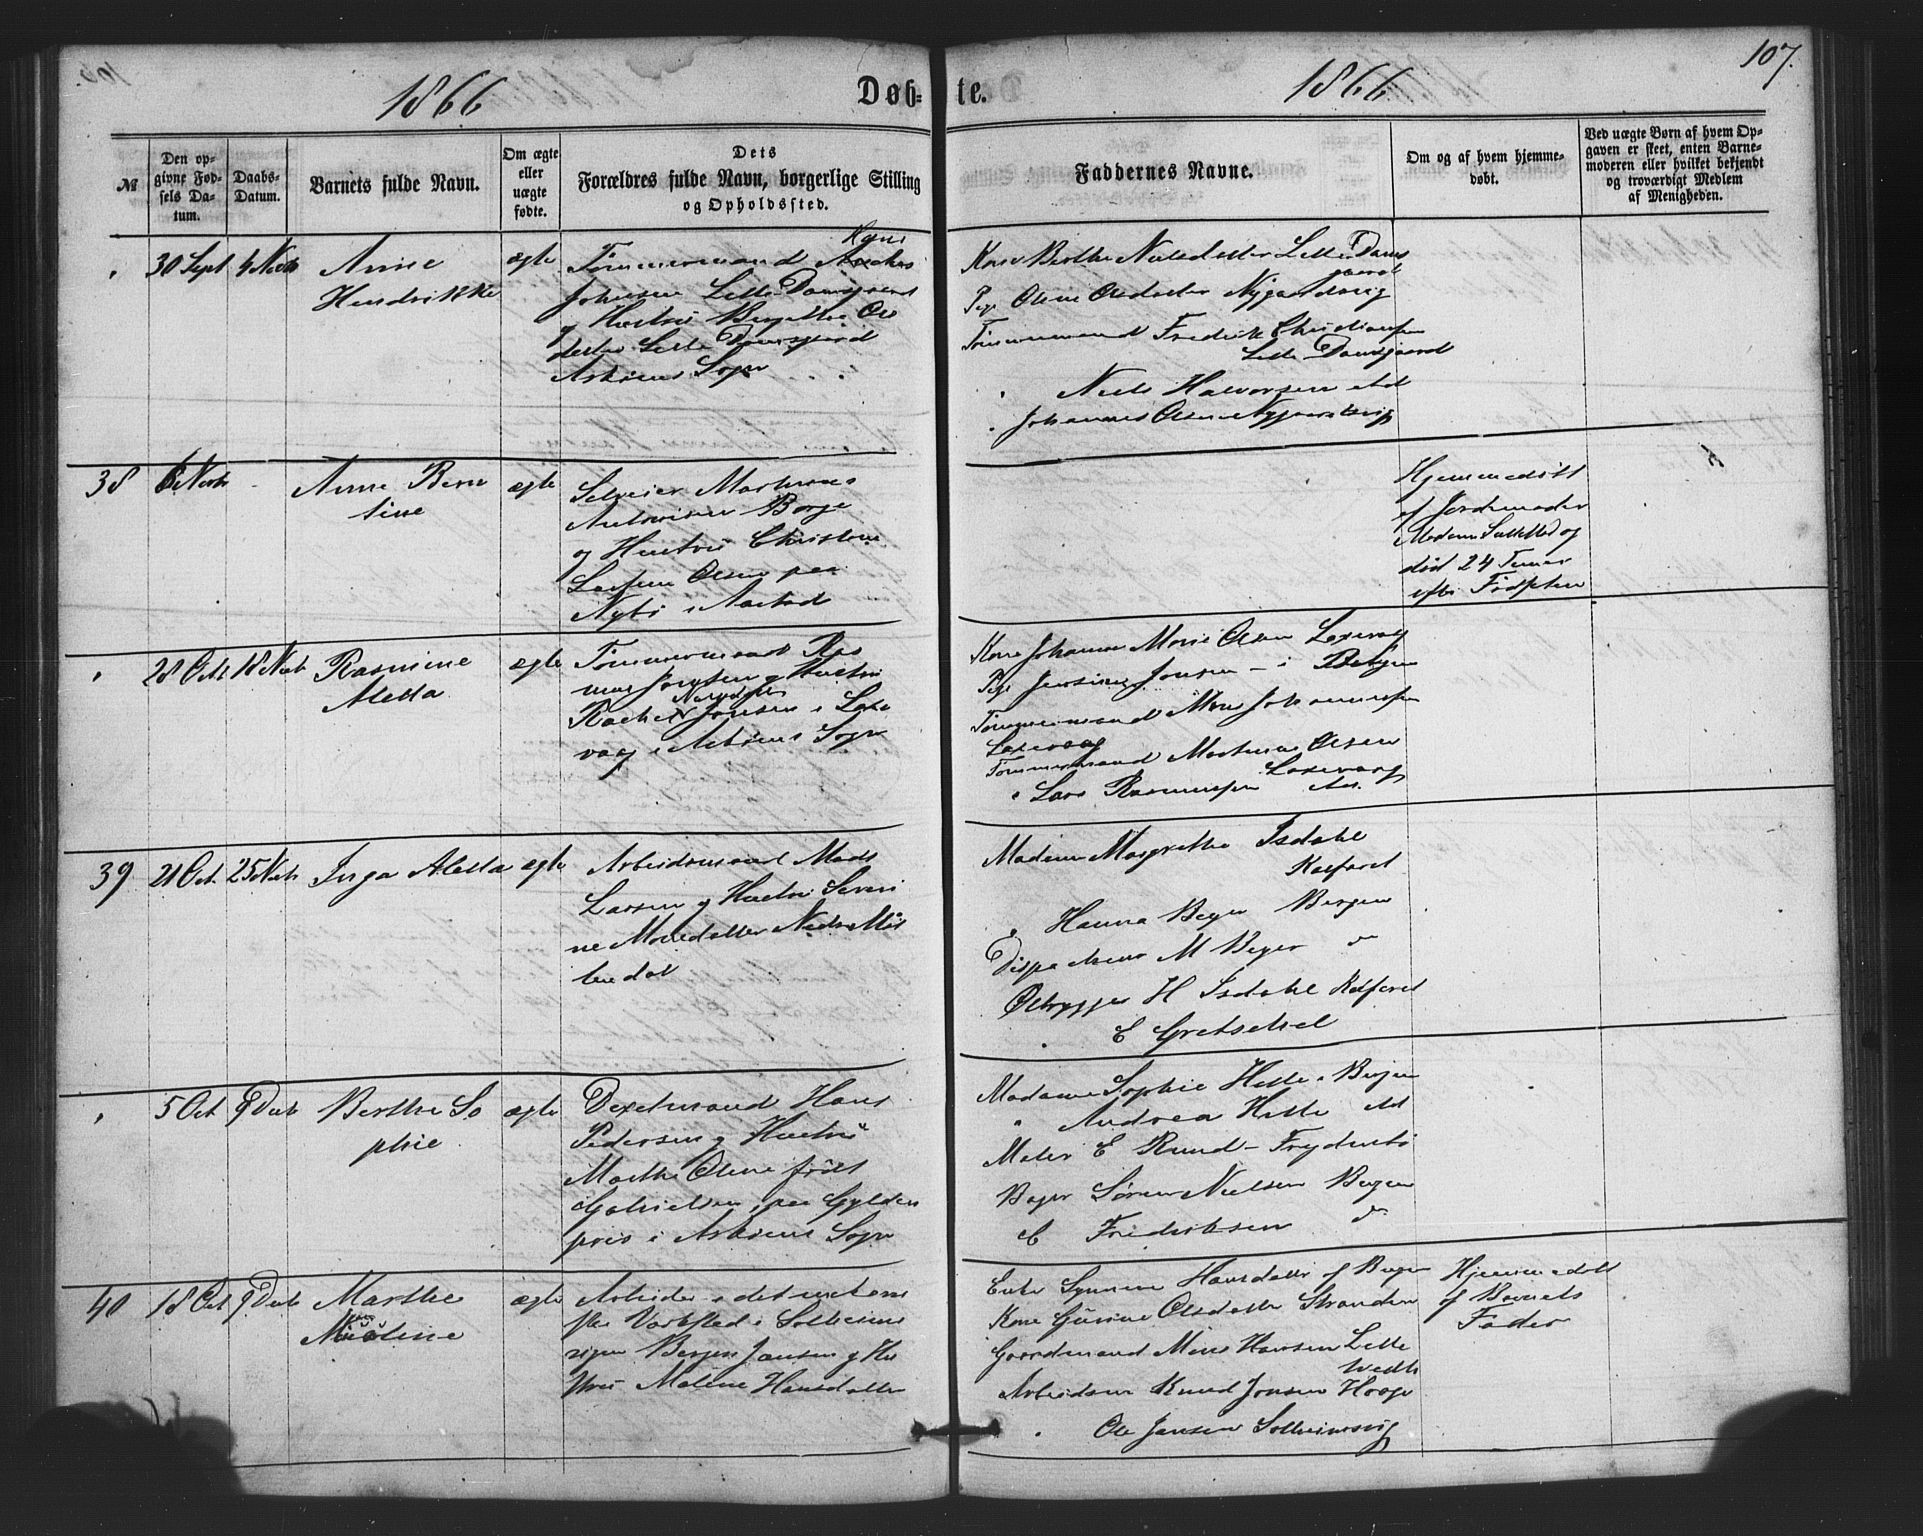 1866
Døb=
te.
1866
107.
№
Den op-
givne Fød-
sels Da-
tum.
Daabs-
Datum.
Barnets fulde Navn.
Om ægte
eller
uægte
fødte.
Dets
Forældres fulde Navn, borgerlige Stilling
og Opholdssted.
Faddernes Navne.
Om og af hvem hjemme-
døbt.
Ved uægte Børn af hvem Op-
gaven er skeet, enten Barne-
moderen eller hvilket bekjendt
og troværdigt Medlem
af Menigheden.
30 Sept
Anne
Hendrikke
ægte
Tømmermand
Johnsen Lille Damsgaard
og Hustru Berthe Ols
datter Lille Damsgaard
Askøens Sogn
Kone Berthe Nielsdatter Lille Dams
gaard
Pige Oline Olsdatter Nygaardsvig
Tømmermand Fredrik Christiansen
Lille Damsgaard
Niels Halvorsen std
Johannes Olsen Nygaardsvig
38
Anne Bern
tine
ægte
Martinus
Antonisen Borge
og Hustru Christine
Olsen paa
Nybø i Aarstad
Hjemmedøbt
af Jordemoder
Madam og
død 24 Timer
efter Fødselen
28 Oct
18 Novb
Rasmine
Aletta
ægte
Tømmermand Ras
mus Jonsen og Hustru
Rachel Jonsen i Laxe
vaag i Askøens Sogn
Kone Johanne Marie Olsen Laxevaag
Pige Jonsen i Bergen
Tømmermand Mons Johannessen
Laxevaag
Tømmermand Martinus Olsen
Laxevaag
Lars Rasmussen std.
39
21 Oct.
25 Novb
Inga Aletta
ægte
Arbeidsmand Mads
Larsen og Hustru Severi
ne Monsdatter Nedre Møl
lendal
Madam Margrethe Isdahl
Kalfaret
Hanna Beyer Bergen
Dispacheur M Beyer do
Ølbrygger H Isdahl Kalfaret
E Gretschel
5 Oct
9 Decb
Berthe So
phie
ægte
Dexelmand Hans
Pedersen og Hustru
Marthe Oline født
Gabrielsen, paa Gylden
pris i Askøens Sogn
Madame Sophie Helle i Bergen
Andrea Helle std
Maler E Rund - Frydenbø
Bager Søren Nielsen Bergen
C Fredriksen do
40
18 Oct
9 Decb
Marthe
ægte
Arbeider i det
ske Værksted i Solheims
vigen Jansen og Hu
stru Malene Hansdatter
Enke Synneve Hansdatter af Bergen
Kone Gurine Olsdatter Stranden
Gaardmand Mons Hansen Lille
Wedth
Arbeidsm Knud Jonsen Hooge
Ole Jansen Solheimsvig
Hjemmedøbt
af Barnets
Fader